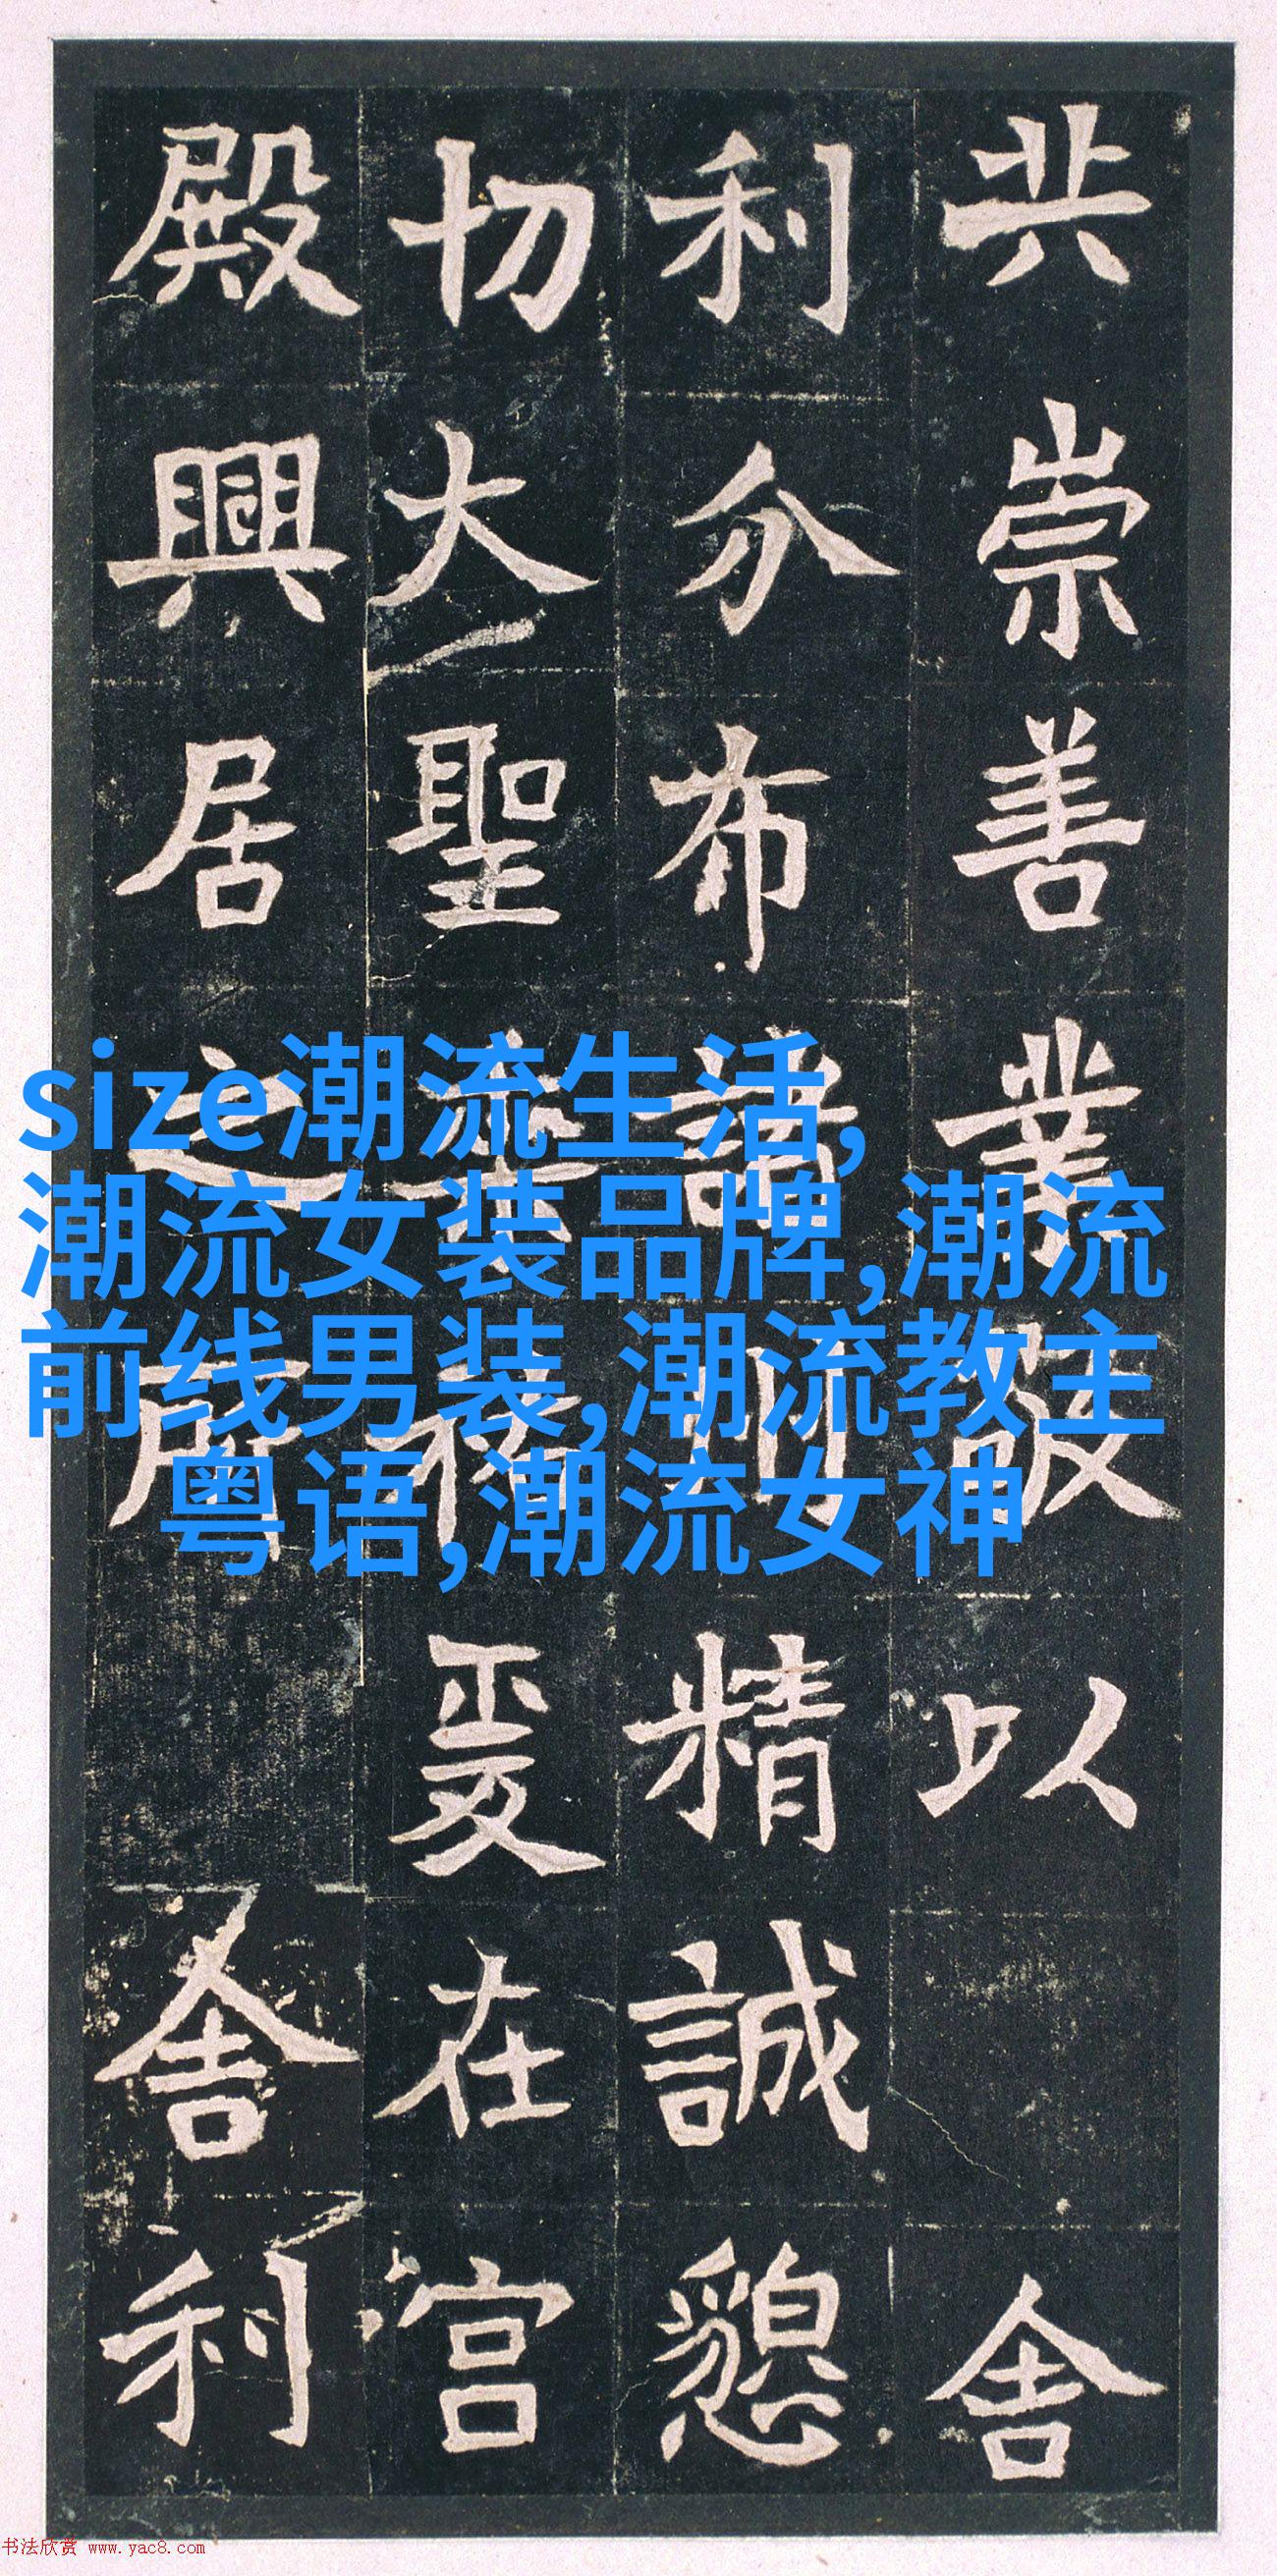 共崇善業敬以舍
利分布諸州精誠懇
切大聖垂祐爰在宮
殿興居之所舍利
size潮流生活,
潮流女装品牌,潮流
前线男装,潮流教主
粤语,潮流女神
书法欣赏 www.yac8.com